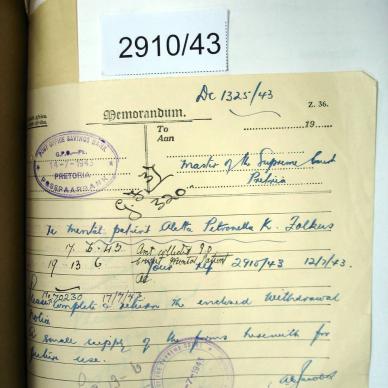 2910/43
De 1325/43
Memorandum.
Z. 36.
To
Aan
19
POST OFFICE SAVINGS BANK
G.P.O.
14-7-1943
PRETORIA
POSSPAARBANK
Master of the Supreme Court
Pretoria
320
Re mental patient Aletta Petronella K. Folkers
7. 6. 43
19 13 6
Your ref 2910/43 12/7/43.
70230 17/7/43
Please complete & return the enclosed withdrawal
notice
A small supply of the forms herewith for
future use.